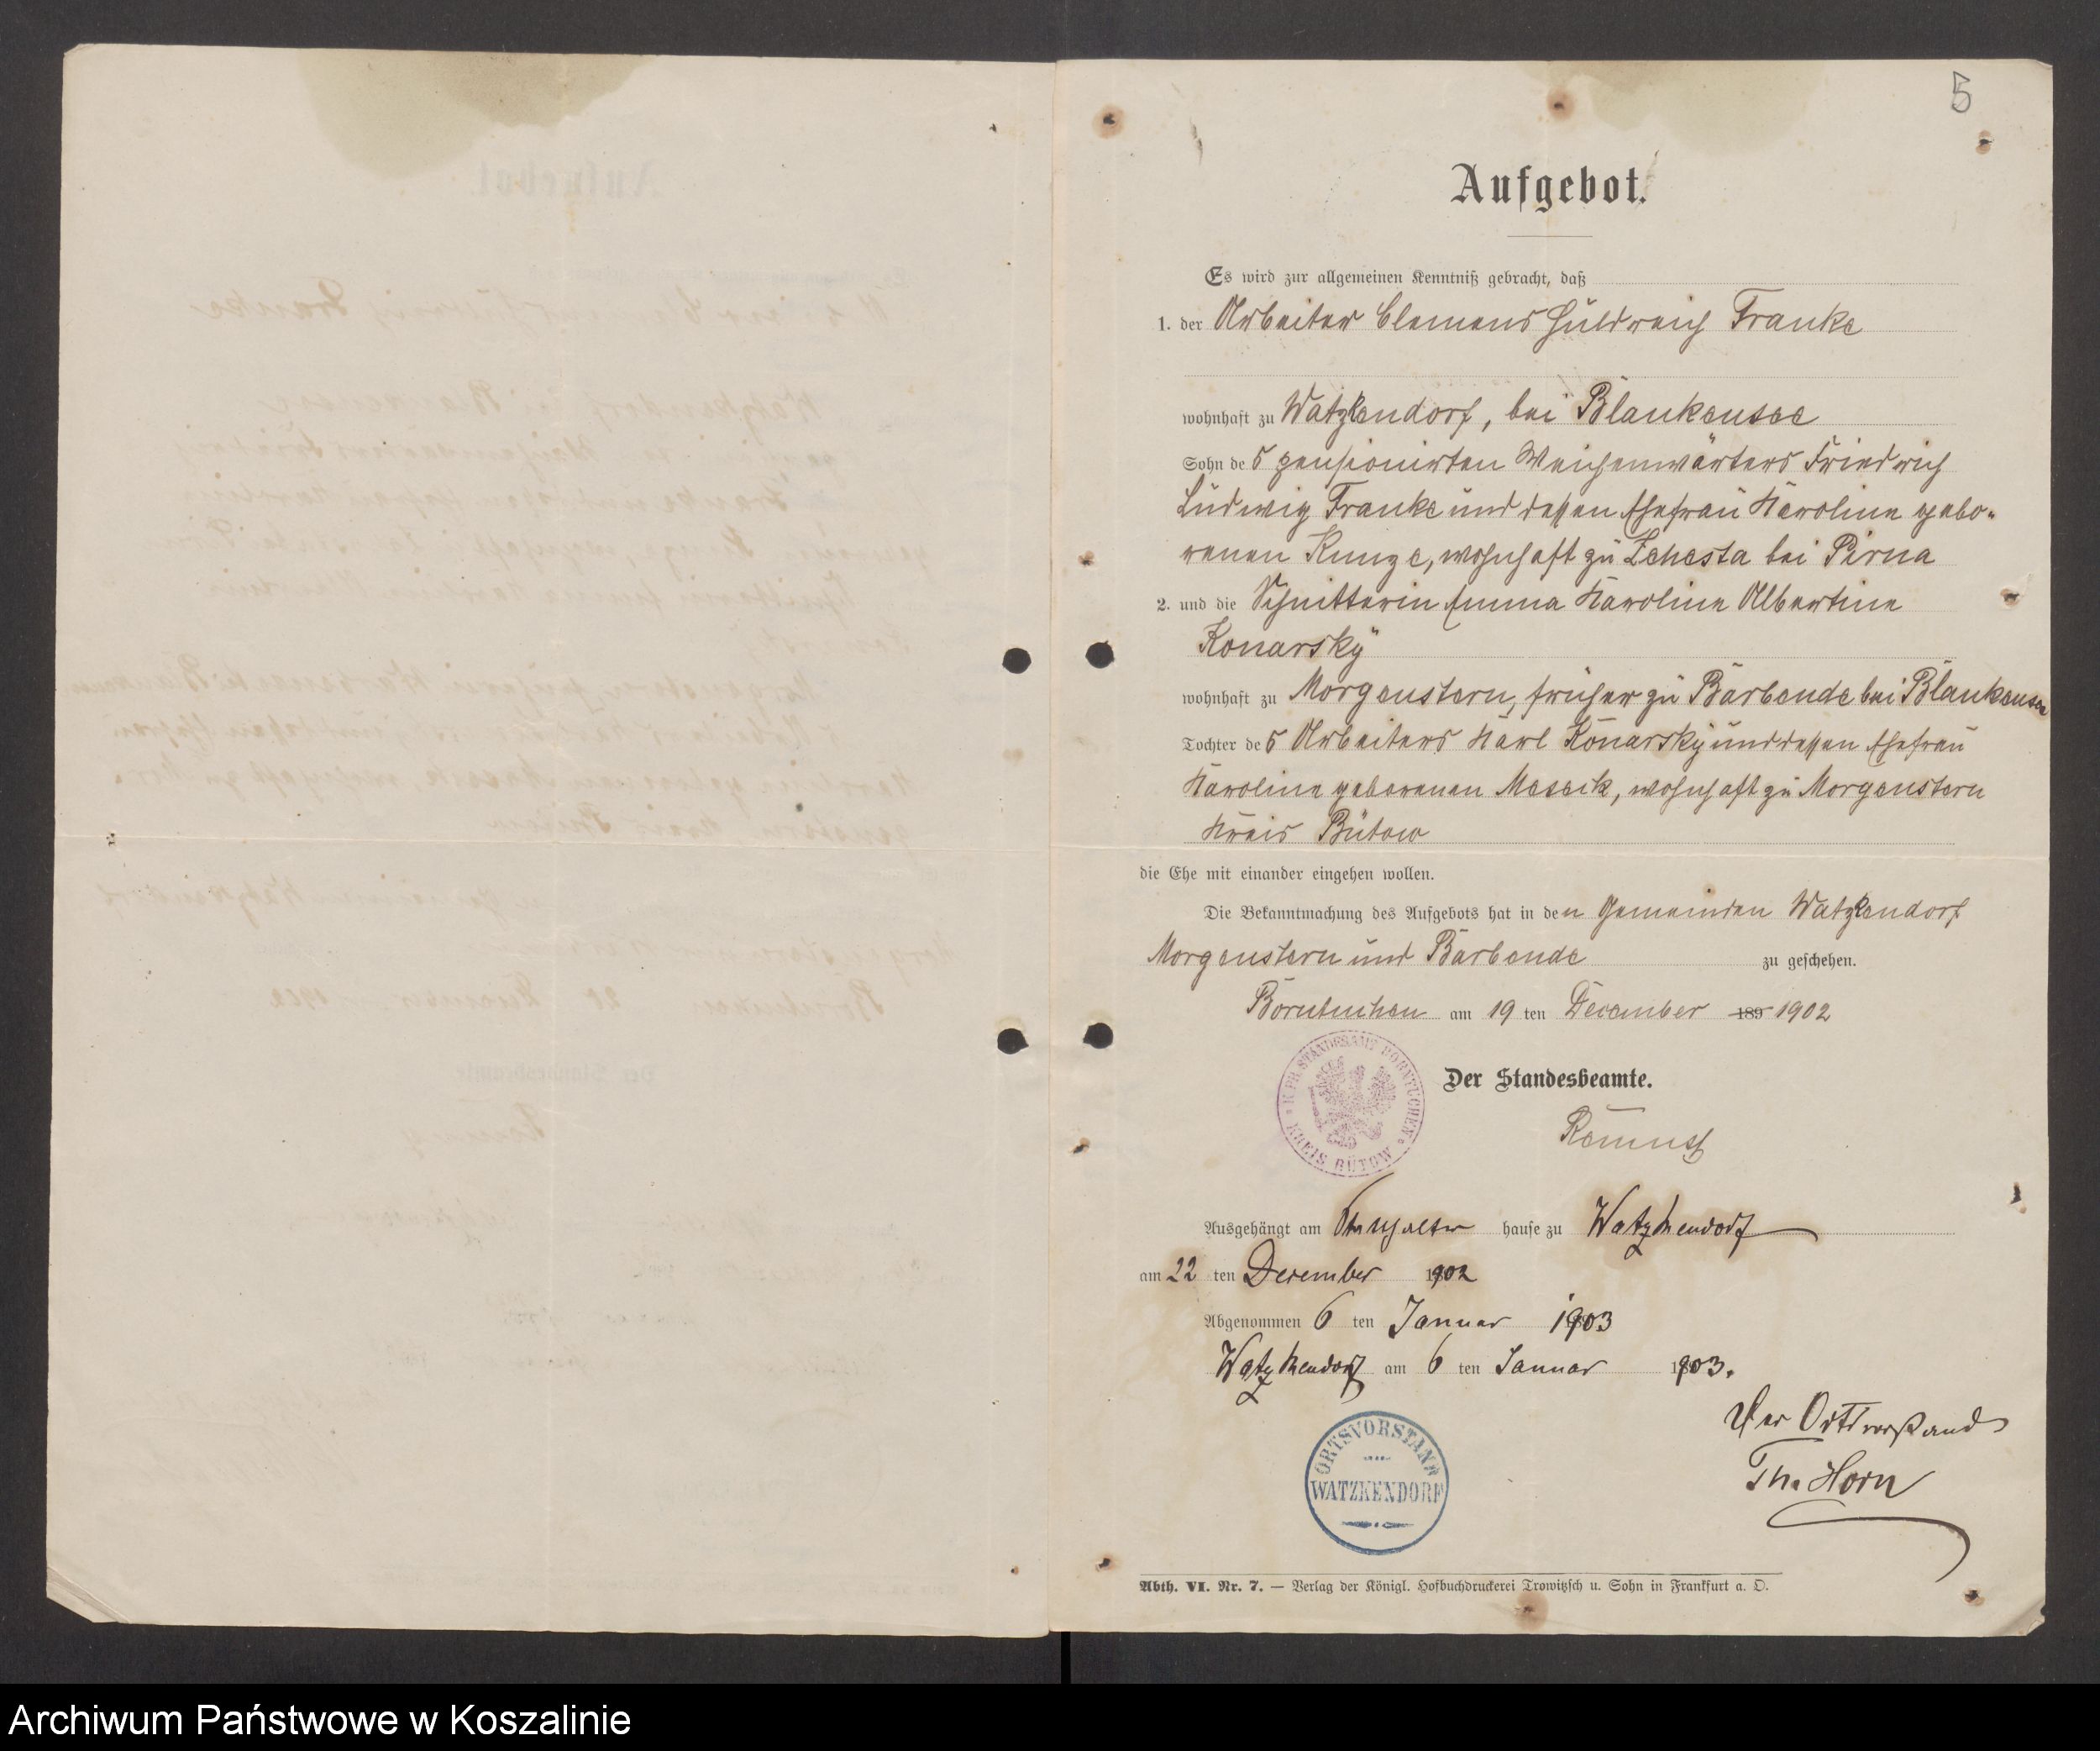 5
Aufgebot.
Es wird zur allgemeinen Kenntniß gebracht, daß
1. der Arbeiter Clemens Huldreich Franke
wohnhaft zu Watzkendorf, bei Blankensee
Sohn des pensionirten Weichenwärters Friedrich
Ludwig Franke und dessen Ehefrau Karoline gebo-
renen Kunze, wohnhaft zu Zehesta bei Pirna
2. und die Schnitterin Emma Karoline Albertine
Konarsky
wohnhaft zu Morgenstern, früher zu Barbende bei Blankensee
Tochter des Arbeiters Karl Konarsky und dessen Ehefrau
Karoline geborenen Meseck, wohnhaft zu Morgenstern
Kreis Bütow
die Ehe mit einander eingehen wollen.
Die Bekanntmachung des Aufgebots hat in den Gemeinden Watzkendorf
Morgenstern und Barbende zu geschehen.
Borntuchen am 19 ten December 189 1902
K. PR. STANDESAMT BORNTUCHEN
KREIS BÜTOW
Der Standesbeamte.
Ausgehängt am hause zu Watzkendorf
am 22 ten December 1902
Abgenommen 6 ten Januar 1903
Watzkendorf am 6 ten Januar 1903.
Der Ortsvorstand
Th. Horn
ORTSVORSTAND
WATZKENDORF
Abth. VI. Nr. 7. — Verlag der Königl. Hofbuchdruckerei Trowitzsch u. Sohn in Frankfurt a. O.
Archiwum Państwowe w Koszalinie